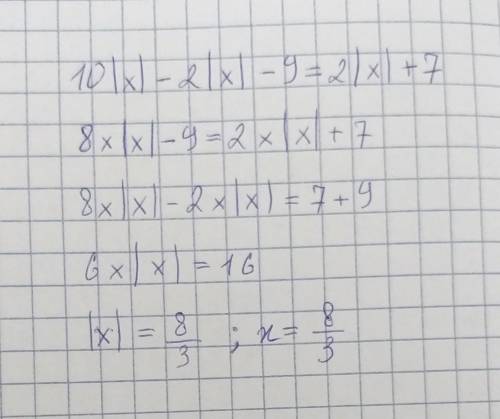 10|x| - 2|x| - 9 = 2|x| + 7
8 × |x| - 9 = 2 × |x| + 7
8 × |x| - 2 × |x| = 7 + 9
6 × |x| = 16
|x| = 8/3 ; x = 8/3